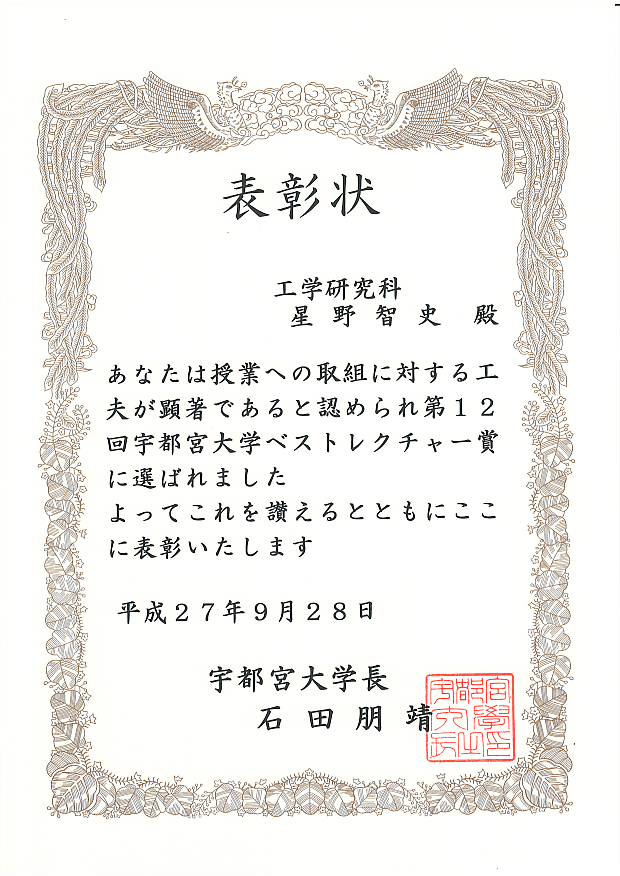 表彰状
工学研究科
星野智史 殿
あなたは授業への取組に対する工
夫が顕著であると認められ第１２
回宇都宮大学ベストレクチャー賞
に選ばれました
よってこれを讃えるとともにここ
に表彰いたします
平成２７年９月２８日
宇都宮大学長
石田朋靖